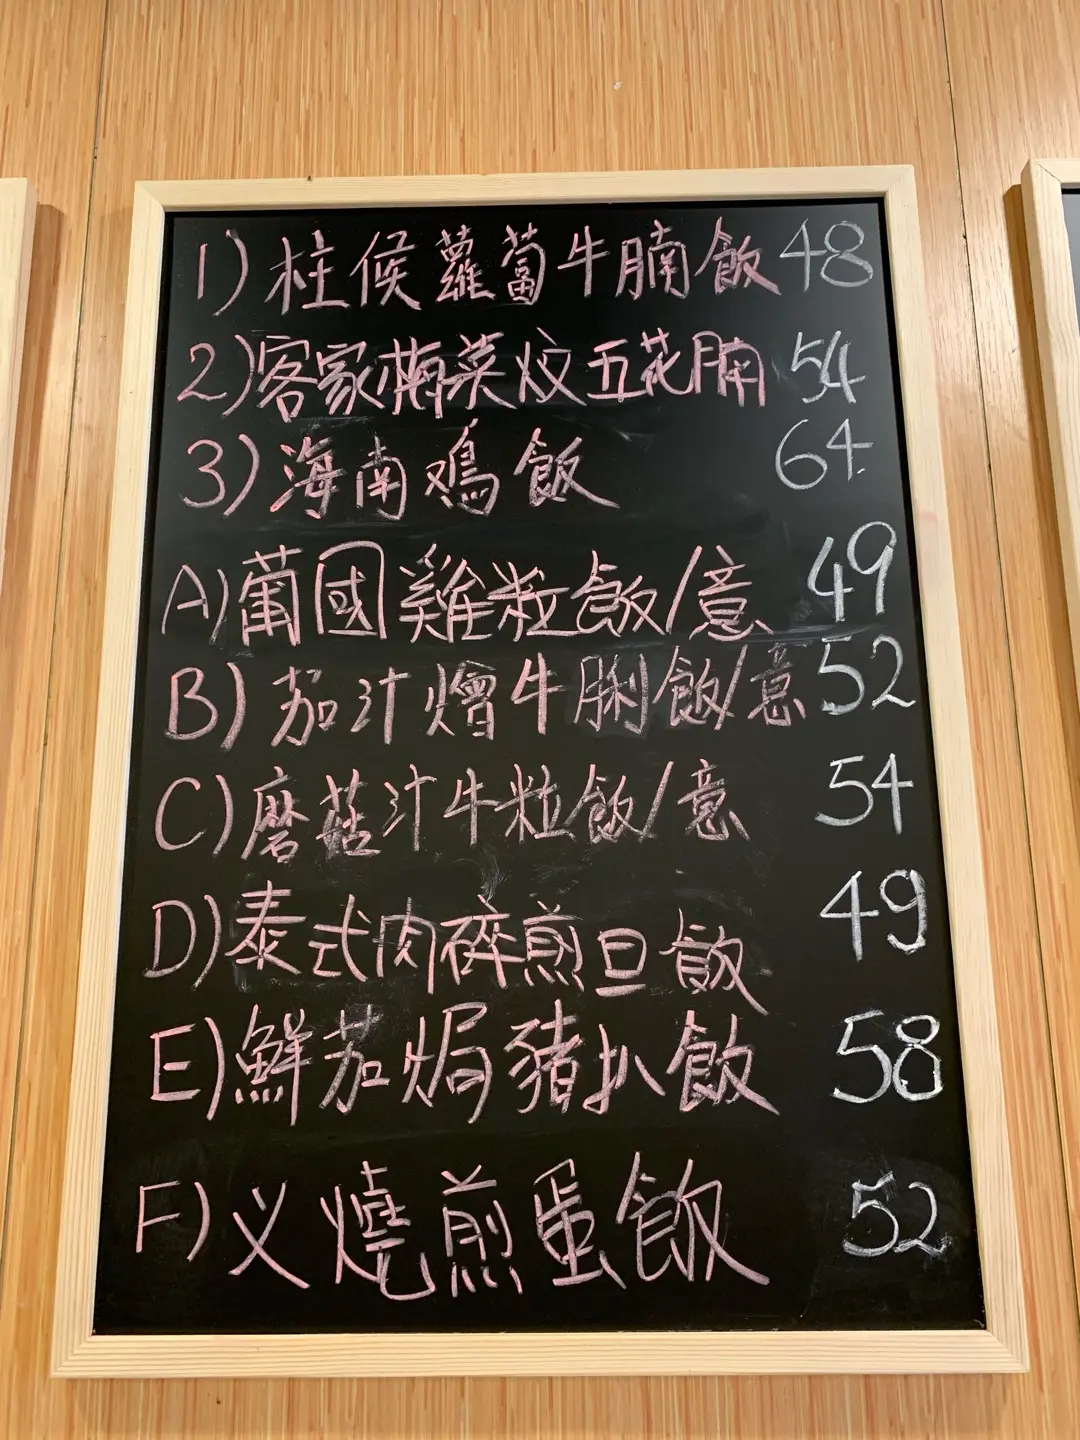 1) 柱侯蘿蔔牛腩飯 48
2) 客家梅菜炆五花腩 54
3) 海南鳮飯 64
A) 葡國雞粒飯/意 49
B) 茄汁燴牛脷飯/意 52
C) 磨菇汁牛粒飯/意 54
D) 泰式肉碎煎旦飯 49
E) 鮮茄焗豬扒飯 58
F) 义燒煎蛋飯 52